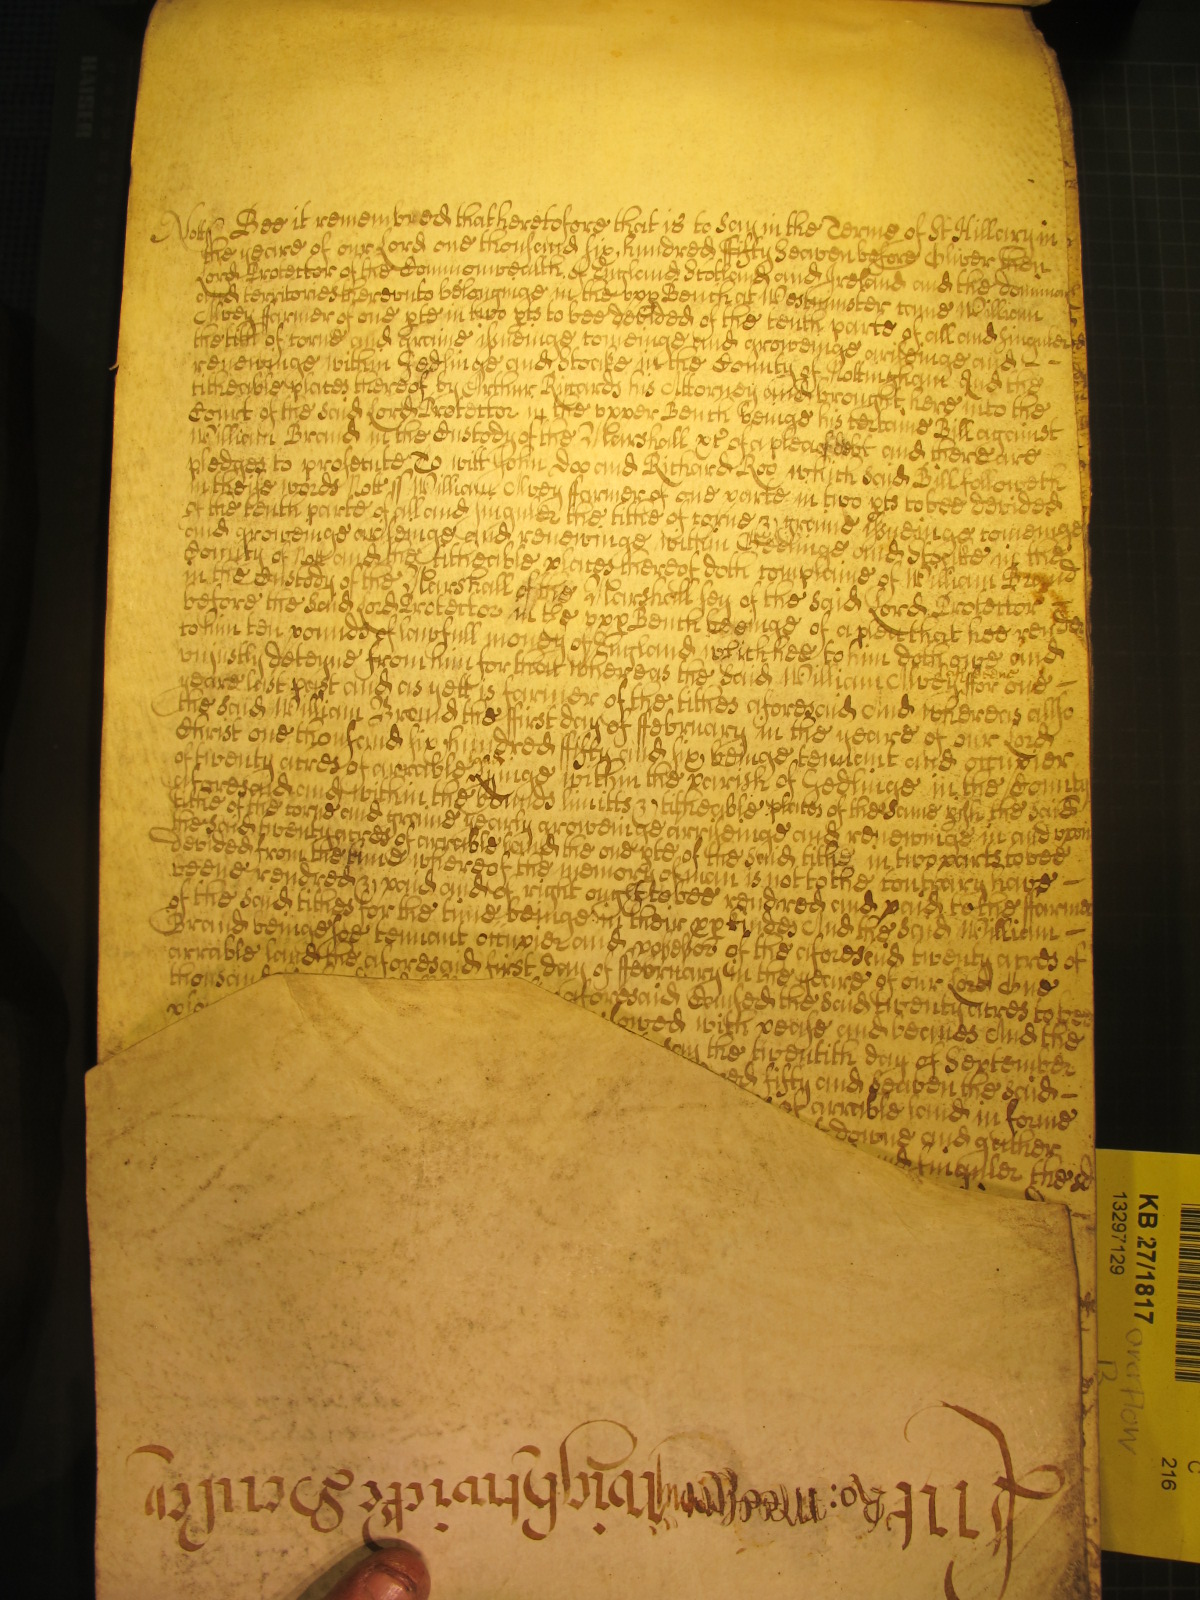 Notts ss Bee it remembred that heretofore that is to say in the Terme of St Hillary in
the yeare of our Lord one thousand six hundred ffifty Seaven before Oliver then
Lord Protector of the Commonwealth of England Scotland and Ireland and the dominions
and territories thereunto belonginge in the upp Bench at Westminster came William
Alvey ffarmer of one pte in two pts to bee devided of the tenth parte of all and singuler
the tith of corne and graine issueinge comeinge and groweinge ariseinge and –
renewinge within Gedlinge and Stoake in the County of Nottingham And the
titheable places thereof by Arthur Riccards his Attorney And brought here into the
Court of the said Lord Protector in the upper Bench beinge his certaine Bill against
William Brand in the Custody of the Marshall &c of a plea of debt and there are
pledges to prosecute To witt John Doo and Richard Roo which said Bill followeth
in theise words Nott ss William Alvey ffarmer of one parte in two pts to bee devided
of the tenth parte of all and singuler the tithe of corne & graine issueinge comeinge
and groweinge ariseinge and renewinge within Gedlinge and Stoake in the
County of Nott and the titheable places thereof doth complaine of William Brand
in the Custody of the Marshall of the Marshallsey of the said Lord Protector
before the said Lord Protector in the upp Bench beeinge of a plea that hee render
to him ten pounds of lawfull money of England which hee to him doth owe and
uniustly deteyne from him for that whereas the said William Alvey for one –
yeare last past and as yett is farmer of the tithes aforesaid And whereas allso
the said William Brand the ffirst day of ffebruary in the yeare of our Lord
Christ one thousand six hundred ffifty and six beinge tennant and occupier
of twenty acres of arrable lyinge within the parish of Gedlinge in the County
aforesaid and within the bounds limitts & titheable places of the same psh the said
tithe of the corne and graine yearly groweinge arryseinge and renewinge in and upon
the said twenty acres of arrable land the one pte of the said tithe in two parts to bee
devided from the time whereof the memory of man is not to the contrary have –
beene rendred & paid and of right ought to bee rendred and paid to the ffarmer
of the said tithes for the time beinge in their pp kindes And the said William –
Brand beinge soe tennant occupier and possessor of the aforesaid twenty acres of
arrable land the aforesaid first day of ffebruary in the yeare of our Lord One
thousand aforesaid Caused the said twenty acres to bee
sowed with pease and beanes And the
the twentith day of September
fifty and seaven the said –
of arrable land in forme
downe and gather
and singuler the sd
Wightwicke
KB 27/1817
13297129
overflow
12
C
216
KAISER